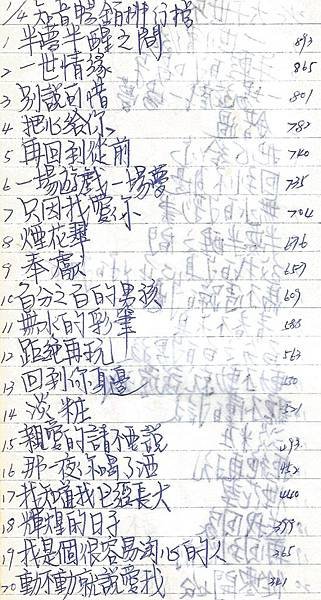 1/4 知音暢銷排行榜
1 半夢半醒之間 893
2 一世情緣 865
3 別說可惜 801
4 把心給你 782
5 再回到從前 740
6 一場遊戲一場夢 735
7 只因我愛你 704
8 煙花 696
9 奉獻 657
10 百分之百的男孩 609
11 無水的彩筆 588
12 距絕再玩 563
13 回到你身邊 550
14 淡粧 521
15 親愛的請不要說 493
16 那一夜你喝了酒 452
17 我知道我已經長大 440
18 輝煌的日子 399
19 我是個很容易淘心的人 365
20 動不動就說愛我 341